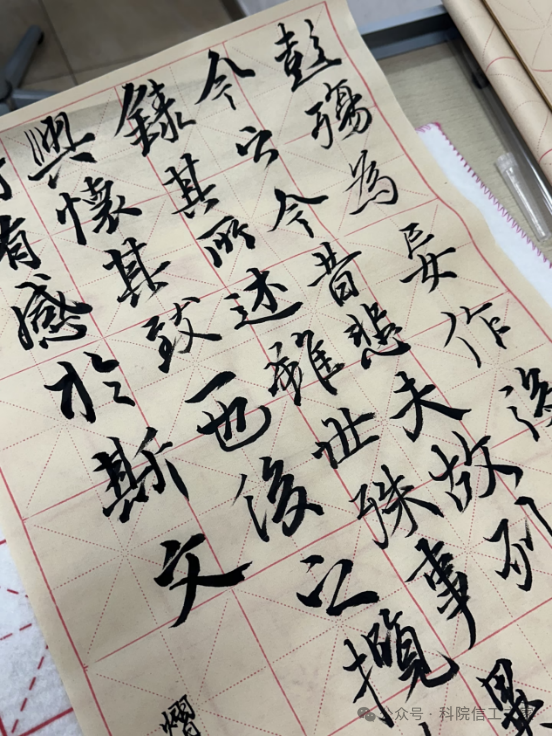 彭殤為妄作後
今之今昔悲夫故列
錄其所述雖世殊事異
興懷其致一也後之攬
有感於斯文
公众号·科院信工